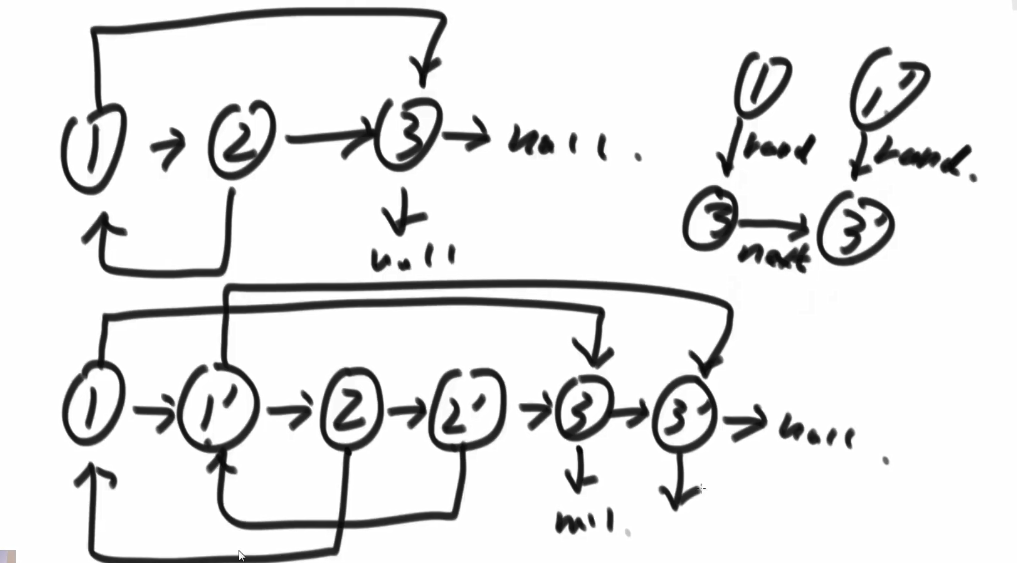 1 2 3 null.
null
1 1'
rand rand.
3 3'
next
1 1' 2 2' 3 3' null.
null.